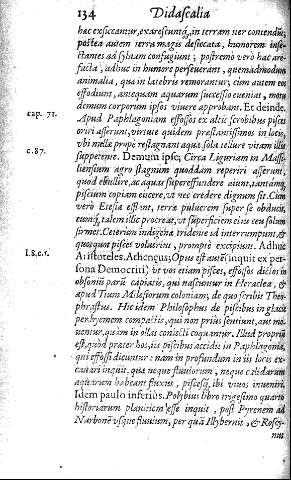 134 Didascalia
hac exsiccantur, exarescuntq́, in terram iter contendũt,
postea autem terra magis desiccata, humorem inse-
ctantes ad syluam confugiunt; postremò verò hac are-
facta, adhuc in humore perseuerant, quemadmodum
animalia, qua in latebris remorantur; cùm autem eos
effodiunt, antequam aquarum successio eueniat, motu
demum corporum ipsos viuere approbant. Et deinde.
cap. 71.
Apud Paphlagoniam effossos ex altis scrobibus pisces
oriri asserunt, virtute quidem præstantissimos in locis,
vbi nella propè restagnant aqua sola tellure vitam illis
c.87.
suppetente. Demum ipse; Circa Liguriam in Massi-
liensium agro stagnum quoddam reperiri asserunt,
quod ebullire, ac aquas supereffundere aiunt, tantamq́,
piscium copiam eiicere, vt nec credere dignum sit. Cum
verò Etesia efflent, terra puluerem super se obducit,
eumq́, talem illic procreat, vt superficiem eius ceu solum
firmet. Ceterùm indigena tridente id interrumpunt, &
quosquot pisces voluerint, promptè excipiunt. Adhuc
I.8.c.1.
Aristoteles. Athenæus; Opus est autẽ (inquit ex per-
sona Democriti) vt vos etiam pisces, effossos dictos in
obsonii parũ capiatis, qui nascuntur in Heraclea, &
apud Tium Milesiorum coloniam, de quo scribit Theo-
phrastus. Hic idem Philosophus de piscibus in glacie
per hyemem compactis, qui non prius sentiunt, aut mo-
uentur, quàm in ollas coniecti coquantur. Illud propriũ
est, quòd præter hos, iis piscibus accidit in Paphlagonia,
qui effossi dicuntur: nam in profundum in iis locis ex-
cauari inquit, qua neque fluuiorum, neque calidarum
aquarum habeant fluxus, piscesq́, ibi viuos inueniri.
Idem paulo inferiùs. Polybius libro trigesimo quarto
historiarum planitiem esse inquit, post Pyrenem ad
Narbonẽ vsque fluuium, per quã Illybernis, & Roscy-
nus